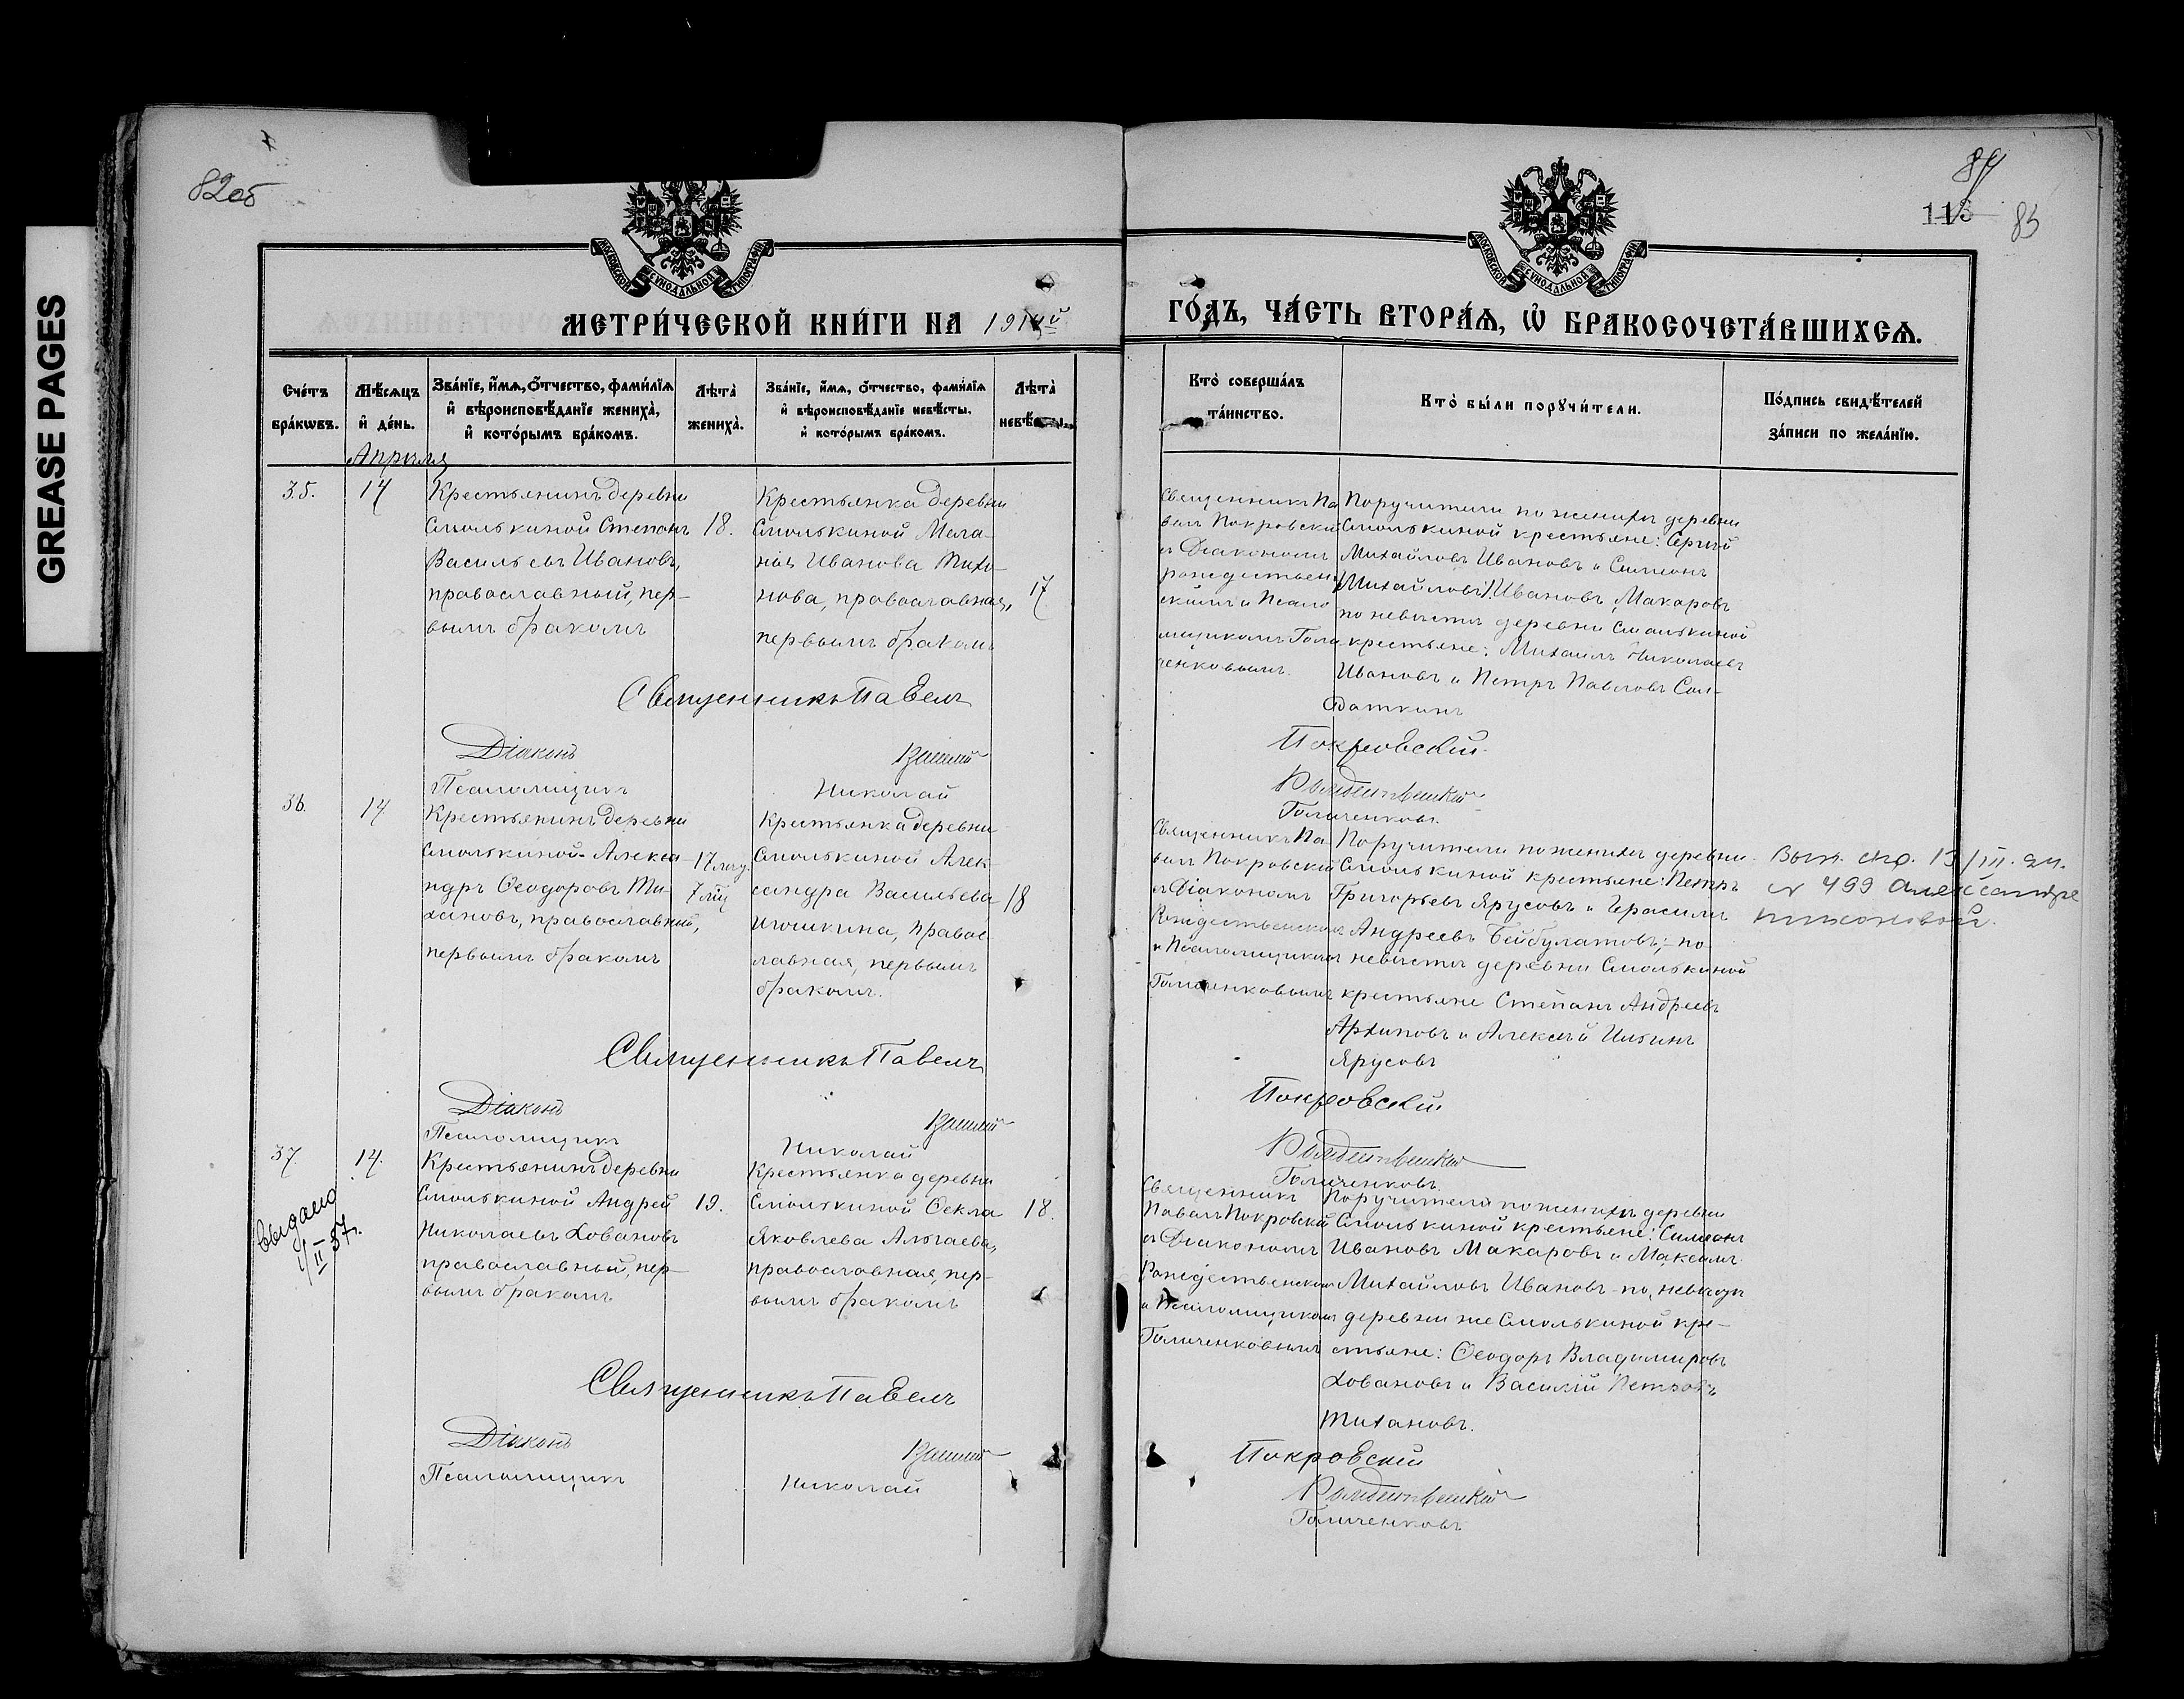 GREASE PAGES
82об
84
113
83
МОСКОВСКОЙ СѴНОДАЛЬНОЙ ТИПОГРАФІИ
МОСКОВСКОЙ СѴНОДАЛЬНОЙ ТИПОГРАФІИ
МЕТРИ́ЧЕСКОЙ КНИ́ГИ НА 1914й
ГО́ДЪ, ЧА́СТЬ ВТОРА́Ѧ, Ѡ҆ БРАКОСОЧЕТА́ВШИХСѦ.
Сче́тъ бра́кѡвъ.
Мѣ́сѧцъ и҆ де́нь.
Зва́нїе, и҆́мѧ, ѻ҆́тчество, фами́лїѧ и҆ вѣроисповѣ́данїе жениха̀, и҆ кото́рымъ бра́комъ.
Лѣта̀ жениха̀.
Зва́нїе, и҆́мѧ, ѻ҆́тчество, фами́лїѧ и҆ вѣроисповѣ́данїе невѣ́сты, и҆ кото́рымъ бра́комъ.
Лѣта̀
Кто̀ соверша́лъ та́инство.
Кто̀ бы́ли порꙋчи́тели.
По́дпись свидѣ́телей за́писи по жела́нїю.
Апрѣля
35.
14
Крестьянинъ деревни
Смолькиной Степанъ
Васильевъ Ивановъ,
православный, пер-
вымъ бракомъ
18.
Крестьянка деревни
Смолькиной Мела-
нія Иванова Тихо-
нова, православная,
первымъ бракомъ
17
Священникъ Па
велъ Покровскій
съ Діакономъ
Поручители по женихѣ деревни
Смолькиной крестьяне: Сергѣй
Михайловъ Ивановъ и Симеонъ
Ивановъ Макаровъ
по невѣстѣ деревни Смолькиной
крестьяне: Михаилъ Николаевъ
Ивановъ и Петръ Павловъ Сол-
даткинъ
Священникъ Павелъ
Покровскій
Діаконъ
Псаломщикъ
Николай
Голиченковъ.
36.
14
Крестьянинъ деревни
Смолькиной Алекса
ндръ Ѳеодоровъ Ти
хановъ, православный,
первымъ бракомъ
17 лѣтъ
7 мѣс
Крестьянка деревни
Смолькиной Алек-
сандра Васильева
Игошкина, правос-
лавная, первымъ
бракомъ.
18
Священникъ Па
велъ Покровскій
съ Діакономъ
Рождественскимъ
и Псаломщикомъ
Голиченковымъ
Поручители по женихѣ деревни
Смолькиной крестьяне: Петръ
Григорьевъ Ярусовъ и Герасимъ
Андреевъ Бейбулатовъ; по
невѣстѣ деревни Смолькиной
крестьяне Степанъ Андреевъ
Архиповъ и Алексѣй Ильинъ
Ярусовъ
Александре
Священникъ Павелъ
Покровскій
Діаконъ
Псаломщикъ
Николай
Голиченковъ.
37.
14.
Выдано
1/II 57.
Крестьянинъ деревни
Смолькиной Андрей
Николаевъ Ховановъ
православный, пер-
вымъ бракомъ
19.
Крестьянка деревни
Смолькиной Ѳекла
Яковлева Алгаева,
православная, пер-
вымъ бракомъ
18.
Священникъ
Павелъ Покровскій
съ Діакономъ
Рождественскимъ
и Псаломщикомъ
Голиченковымъ
Поручители по женихѣ деревни
Смолькиной крестьяне: Симеонъ
Ивановъ Макаровъ и Максимъ
Михайловъ Ивановъ - по невѣстѣ
деревни же Смолькиной кре-
стьяне: Ѳеодоръ Владимировъ
Ховановъ и Василій Петровъ
Тихановъ.
Священникъ Павелъ
Покровскій
Діаконъ
Псаломщикъ
Николай
Голиченковъ